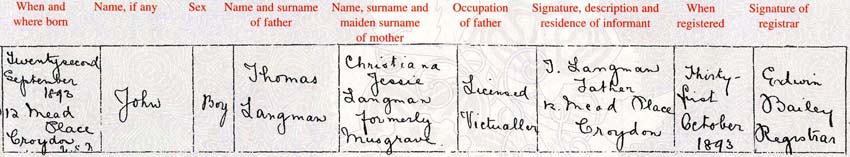 When and where born
Name, if any
Sex
Name and surname of father
Name, surname and maiden surname of mother
Occupation of father
Signature, description and residence of informant
When registered
Signature of registrar
Twentysecond
September
1893
12 Mead
Place
Croydon
John
Boy
Thomas
Langman
Christiana
Jessie
Langman
formerly
Musgrave
Licensed
Victualler
T. Langman
Father
12. Mead Place
Croydon
Thirty-
first
October
1893
Edwin
Bailey
Registrar